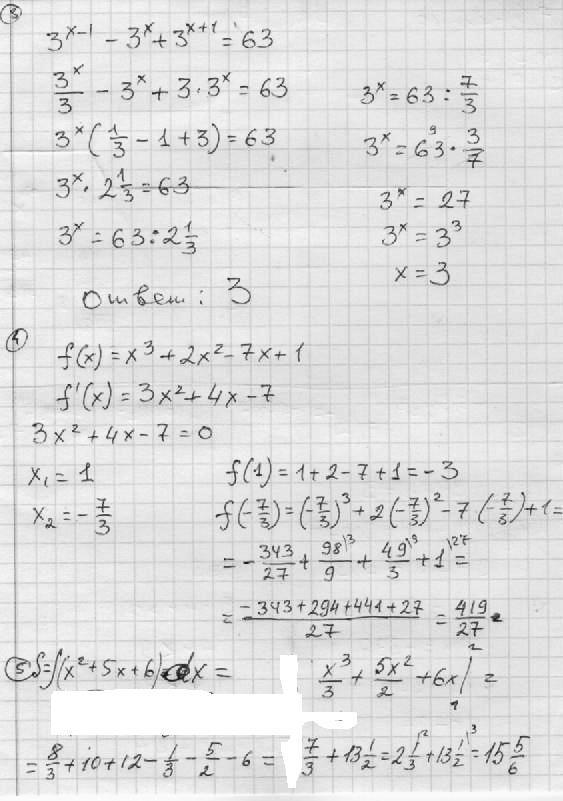 ③
3^(x-1) - 3^x + 3^(x+1) = 63
3^x/3 - 3^x + 3·3^x = 63
3^x(1/3 - 1 + 3) = 63
3^x · 2 1/3 = 63
3^x = 63 : 2 1/3
3^x = 63 : 7/3
3^x = 63^9 · 3/7
3^x = 27
3^x = 3^3
x = 3
Ответ: 3
④
f(x) = x^3 + 2x^2 - 7x + 1
f'(x) = 3x^2 + 4x - 7
3x^2 + 4x - 7 = 0
x₁ = 1
x₂ = -7/3
f(1) = 1 + 2 - 7 + 1 = -3
f(-7/3) = (-7/3)^3 + 2(-7/3)^2 - 7(-7/3) + 1 =
= -343/27 + 98/9 \3 + 49/3 \9 + 1 \27 =
= (-343 + 294 + 441 + 27)/27 = 419/27
⑤ S = ∫(x^2 + 5x + 6) dx = x^3/3 + 5x^2/2 + 6x |₁² =
= 8/3 + 10 + 12 - 1/3 - 5/2 - 6 = 7/3 + 13 1/2 = 2 1/3 \2 + 13 1/2 \3 = 15 5/6